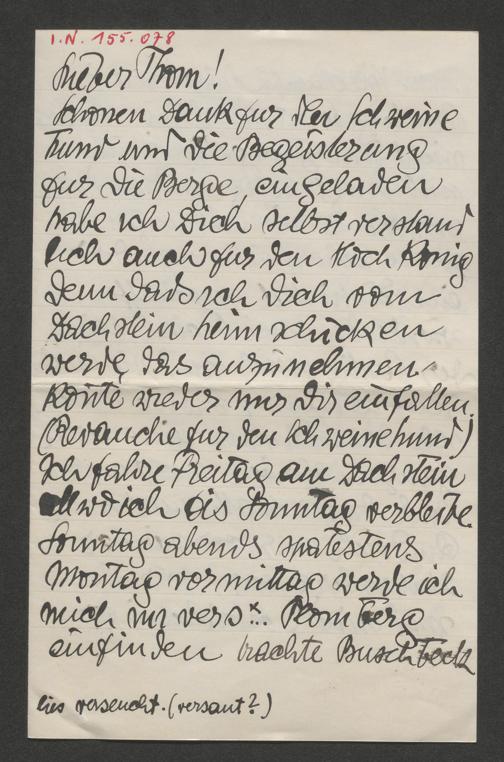 I.N. 155.078
Lieber Thom!
Schönen Dank für den Schweine
hund und die Begeisterung
für die Berge, eingeladen
habe ich Dich selbst verständ
lich auch für den Hoch König
denn dass ich Dich vom
Dachstein heim schicken
werde, das anzunehmen
konte wieder nur Dir einfallen.
(Revanche für den Schweinehund)
Ich fahre Freitag am Dachstein
allwo ich bis Sonntag verbleibe.
Sonntag abends spätestens
Montag vormittag werde ich
mich in vers*... Plomberg
einfinden trachte Buschbeck
lies verseucht. (versaut?)